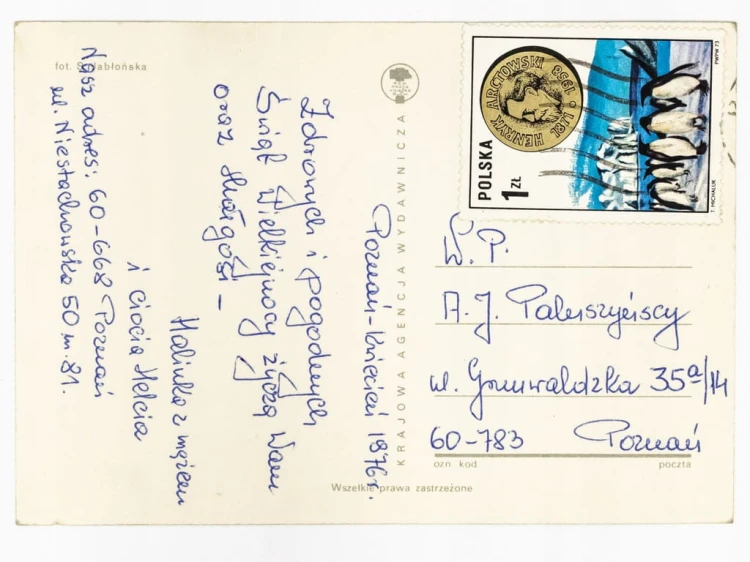 fot. S. Jabłońska
Poznań-kwiecień 1976r.
Zdrowych i pogodnych
Świąt Wielkiejnocy życzą Wam
oraz
Halinka z mężem
i ciocia Helcia
Nasz adres: 60-668 Poznań
ul. Niestachowska 50 m. 81.
KRAJOWA AGENCJA WYDAWNICZA
Wszelkie prawa zastrzeżone
POLSKA
1 ZŁ
HENRYK ARCTOWSKI
1958
T. MICHALUK
PWPW 73
W.P.
A. J. Paluszyńscy
ul. Grunwaldzka 35a/14
60-783 Poznań
ozn kod
poczta